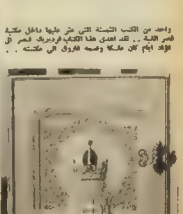 واحد من الكتب الثمينة التي عثر عليها داخل مكتبة
قصر القبة .. لقد اهدى هذا الكتاب فردريك قيصر الى
فؤاد ايام كان ملكا وضمه فاروق الى مكتبته ...